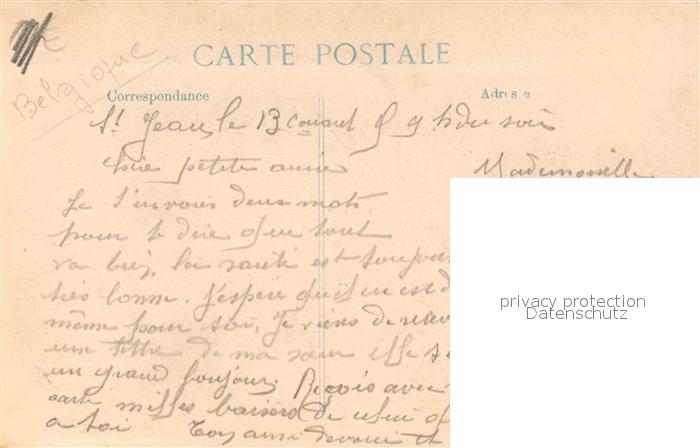 Belgique
CARTE POSTALE
Correspondance
Adresse
St Jean, le 13 courant 9 h du soir
Chère petite amie
Mademoiselle
Je t'envois deux mots
pour te dire que tout
va bien, la santé est toujours
très bonne. J'espère qu'il en est d
même pour toi, Je viens de
une lettre de ma sœur elle
un grand bonjour. Reçois avec
carte milles baisers de celui
a toi Ton ami
privacy protection
Datenschutz